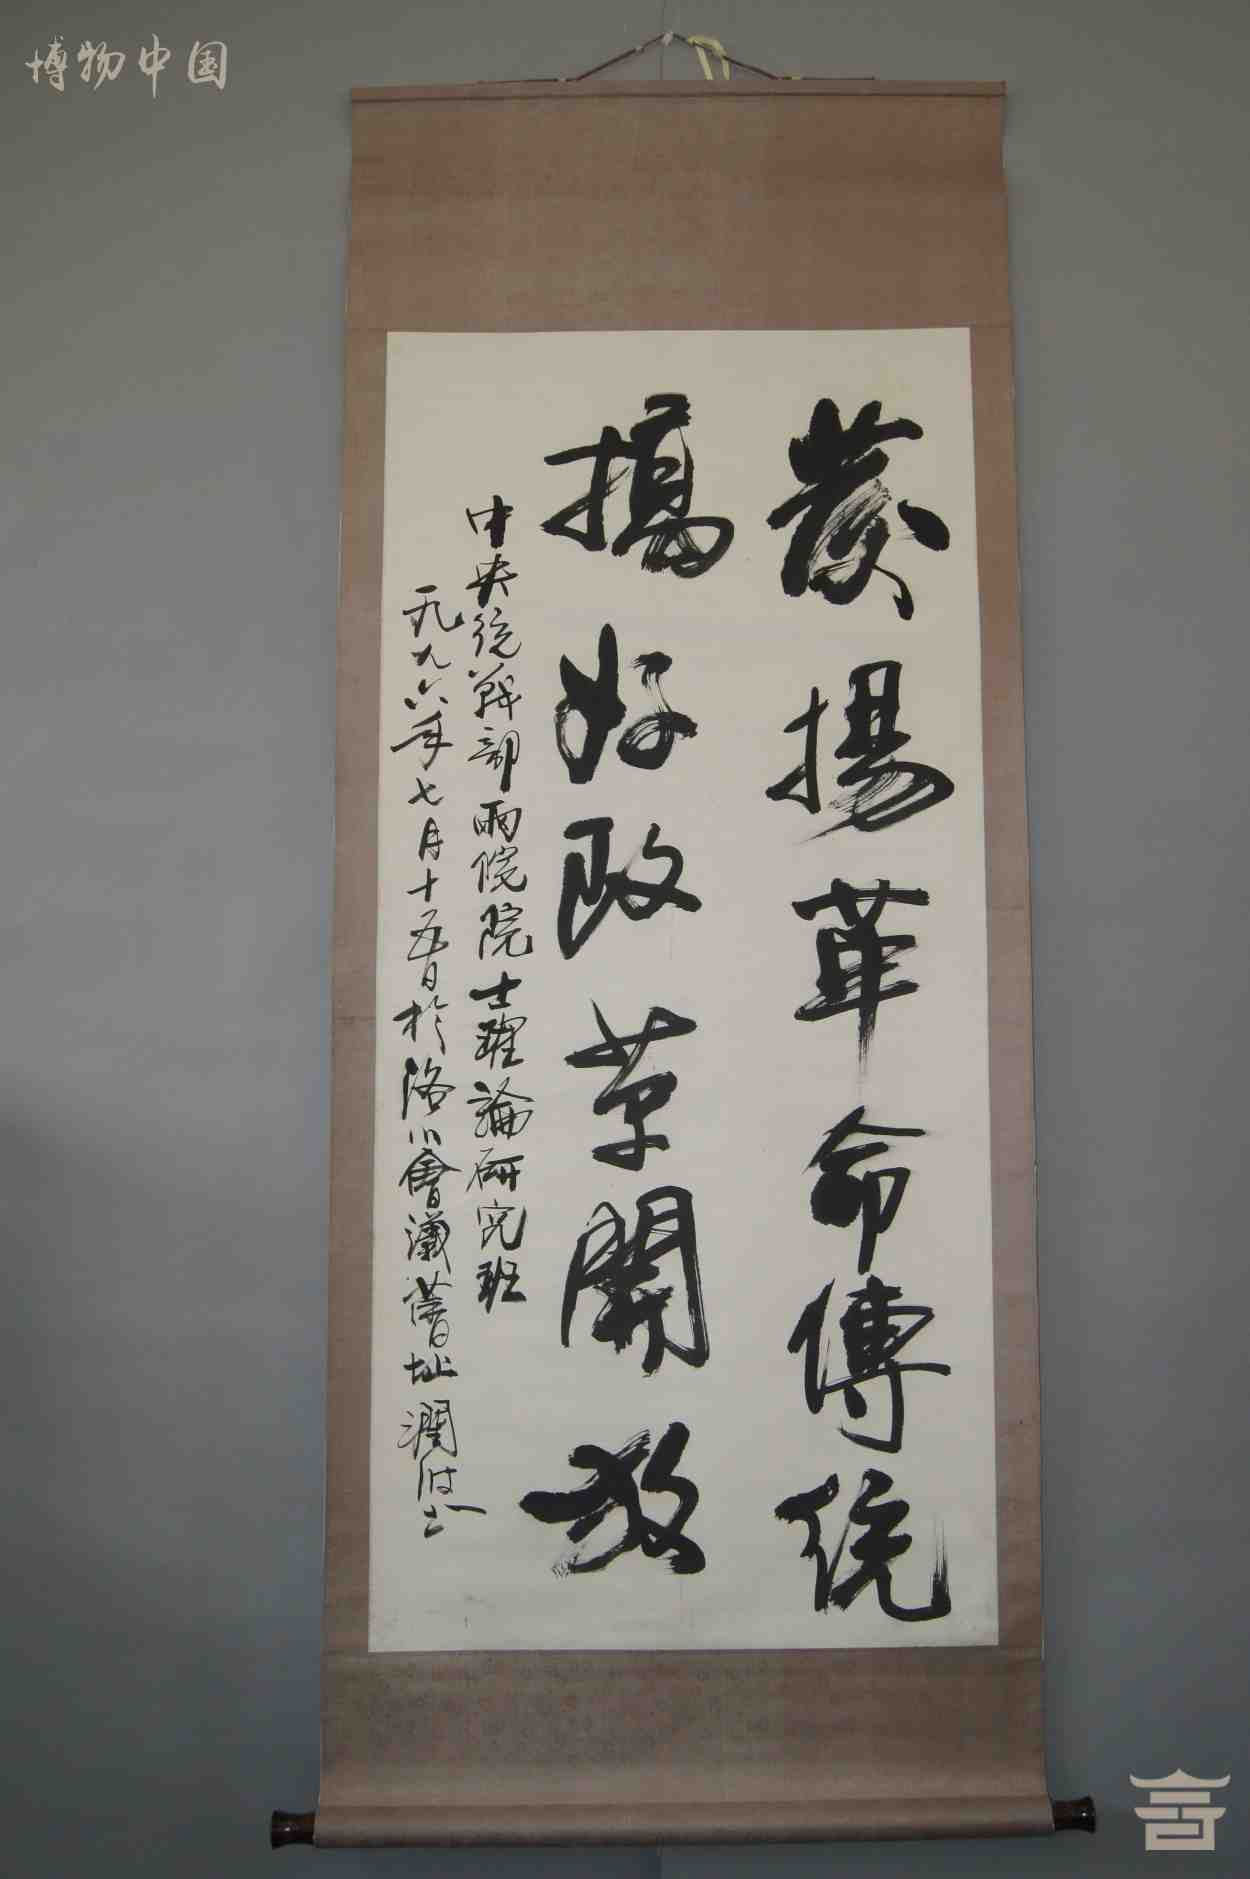 博物中国
發揚革命傳統
搞好改革開放
中央统戰部兩院院士理論研究班
一九九六年七月十五日於洛川會議舊址